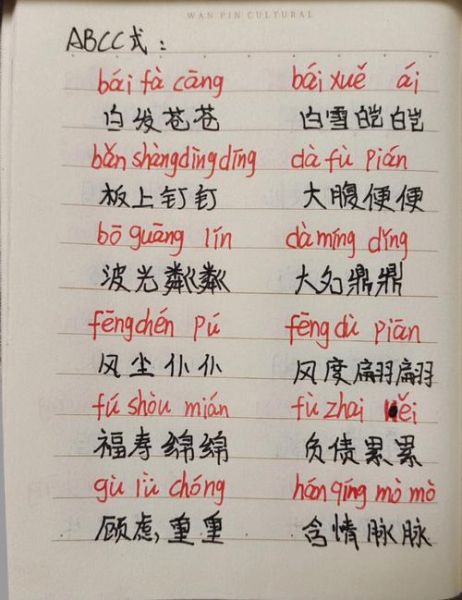 WAN PIN CULTURAL
ABCC式：
bái fà cāng bái xuě ái
白发苍苍 白雪皑皑
bǎn shàng dìng dīng dà fù pián
板上钉钉 大腹便便
bō guāng lín dà míng dǐng
波光粼粼 大名鼎鼎
fēng chén pú fēng dù piān
风尘仆仆 风度翩翩
fú shòu mián fù zhai lěi
福寿绵绵 负债累累
gù lǜ chóng hán qíng mò mò
顾虑,重重 含情脉脉